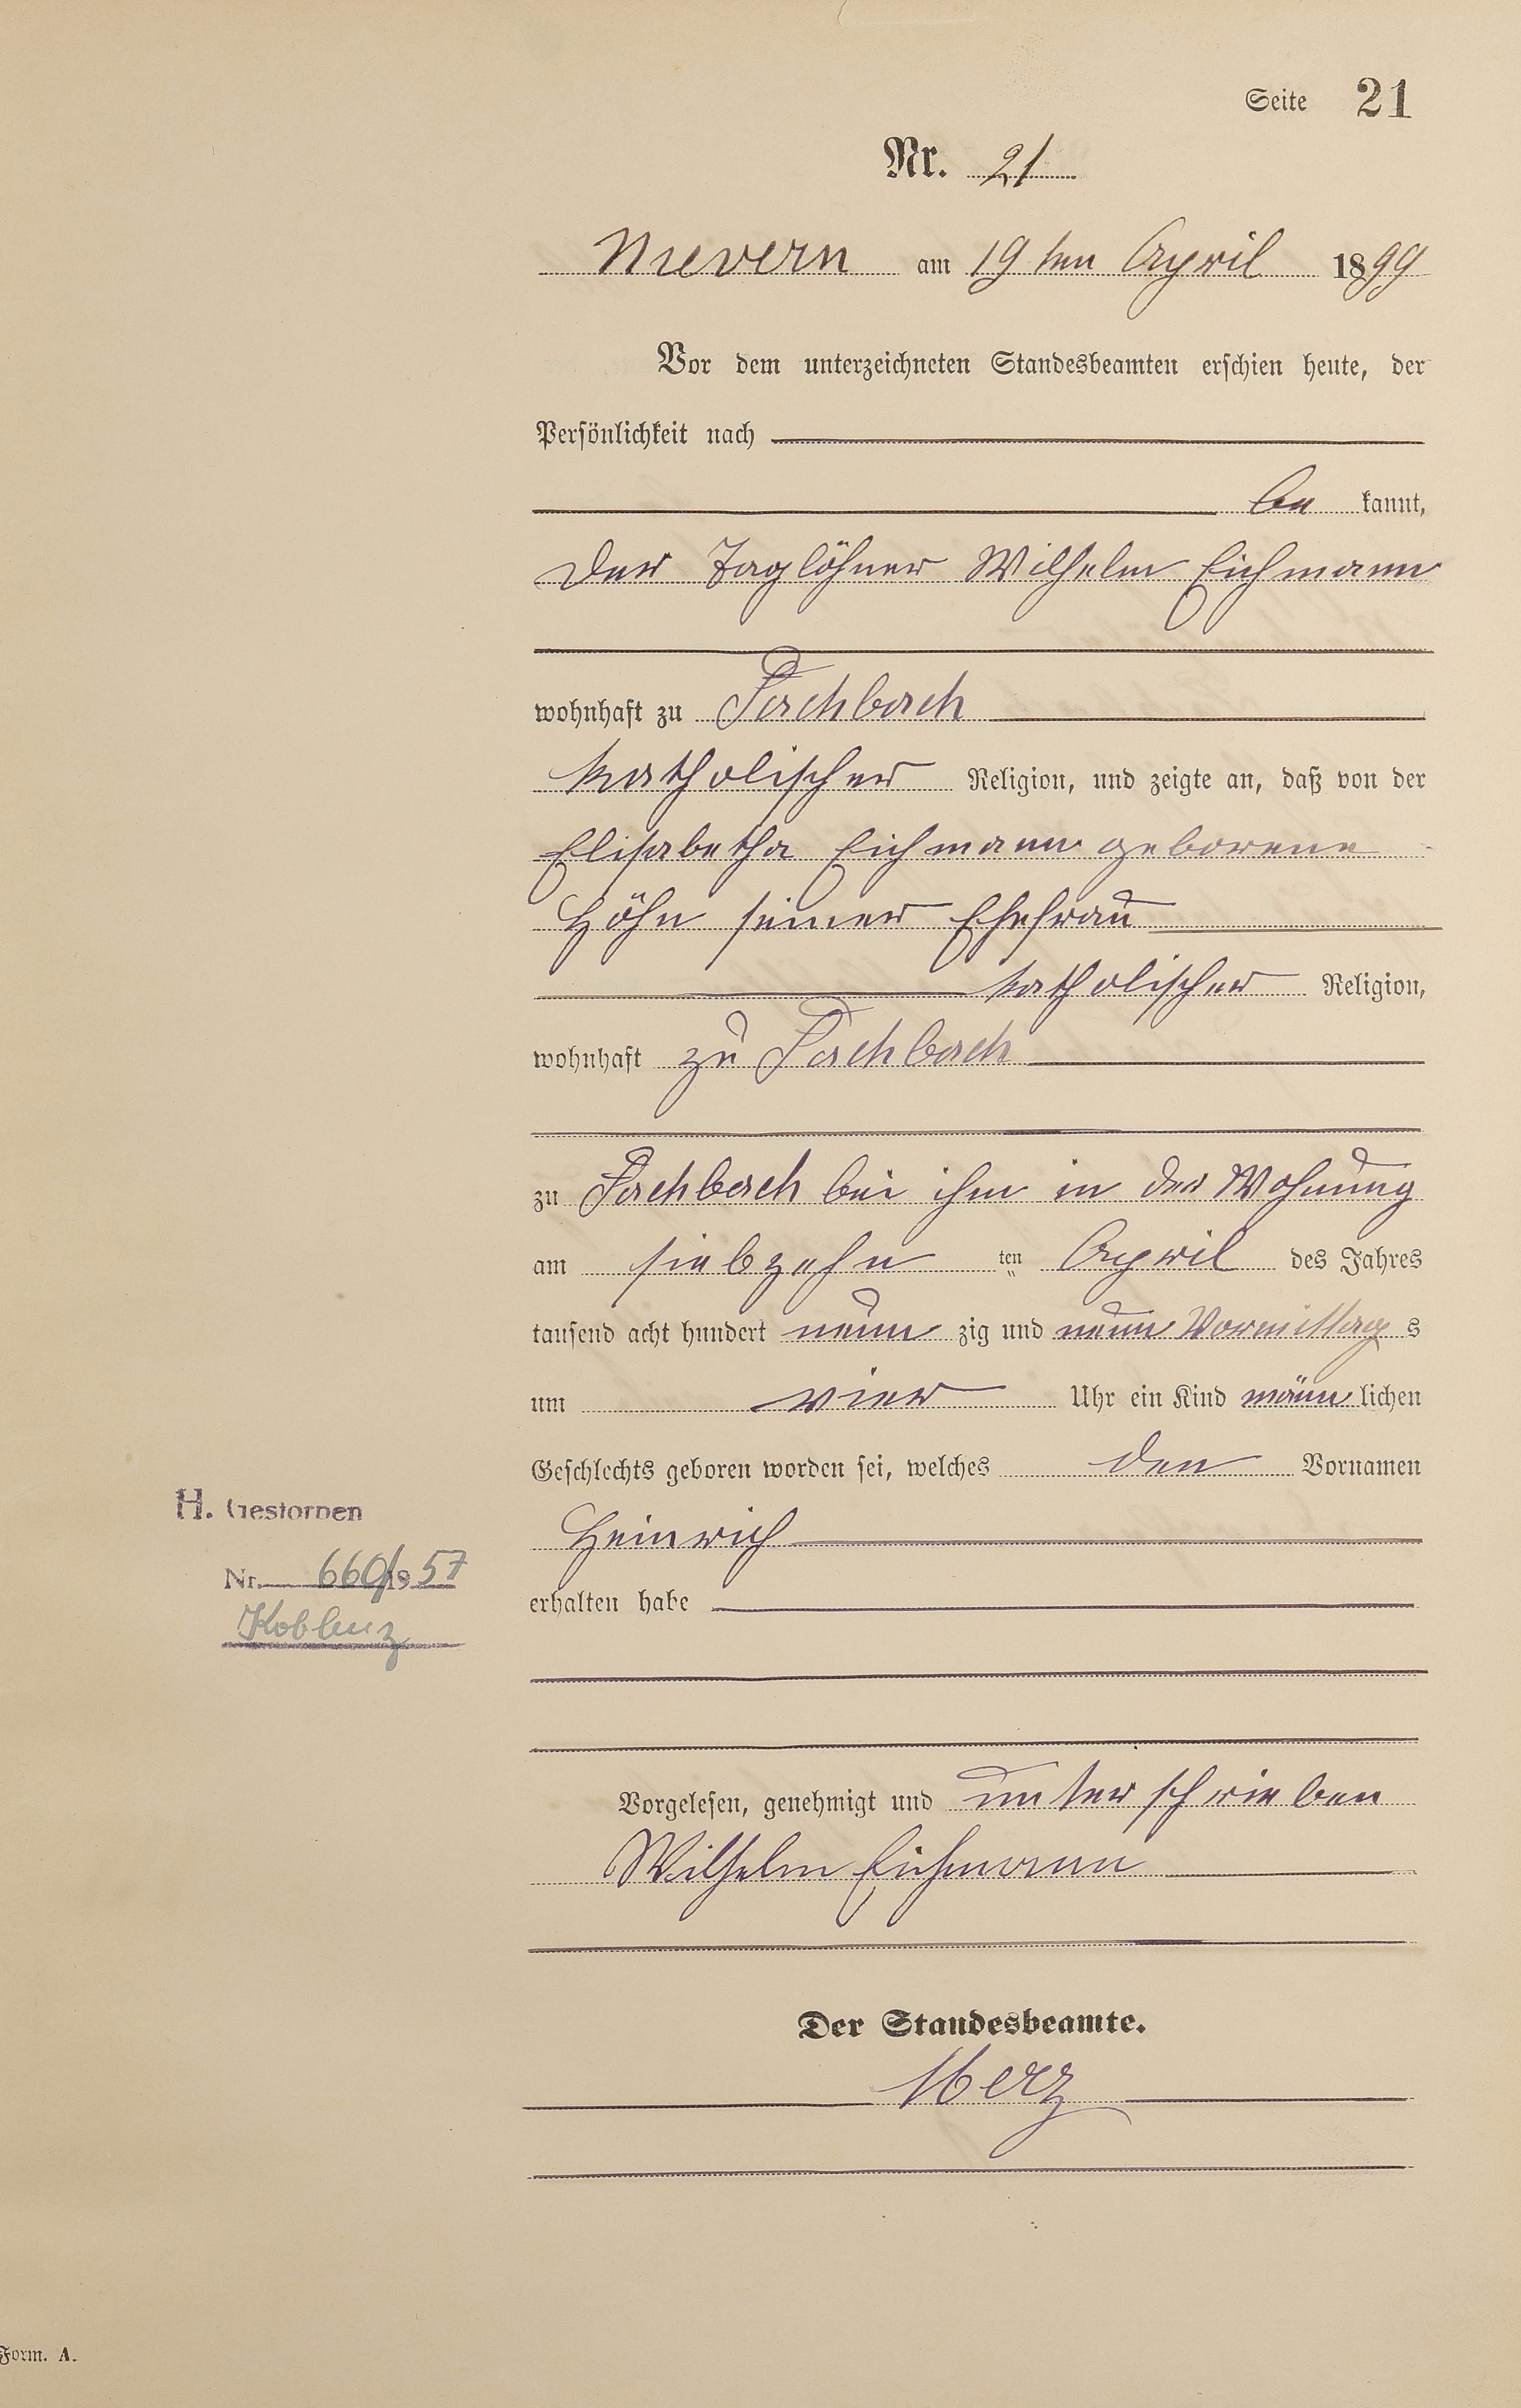 Seite 21
Nr. 21
Nievern am 19ten April 1899
Vor dem unterzeichneten Standesbeamten erschien heute, der
Persönlichkeit nach
be kannt,
der Taglöhner Wilhelm Eichmann
wohnhaft zu Fachbach
katholischer Religion, und zeigte an, daß von der
Elisabetha Eichmann geborene
Höhn seiner Ehefrau
katholischer Religion,
wohnhaft zu Fachbach
zu Fachbach bei ihm in der Wohnung
am siebzehn ten April des Jahres
tausend acht hundert neun zig und neun Vormittag s
um vier Uhr ein Kind männ lichen
Geschlechts geboren worden sei, welches den Vornamen
H. Gestorben
Heinrich
Nr. 660/1957
erhalten habe
Koblenz
Vorgelesen, genehmigt und unterschrieben
Wilhelm Eichmann
Der Standesbeamte.
Merz
Form. A.